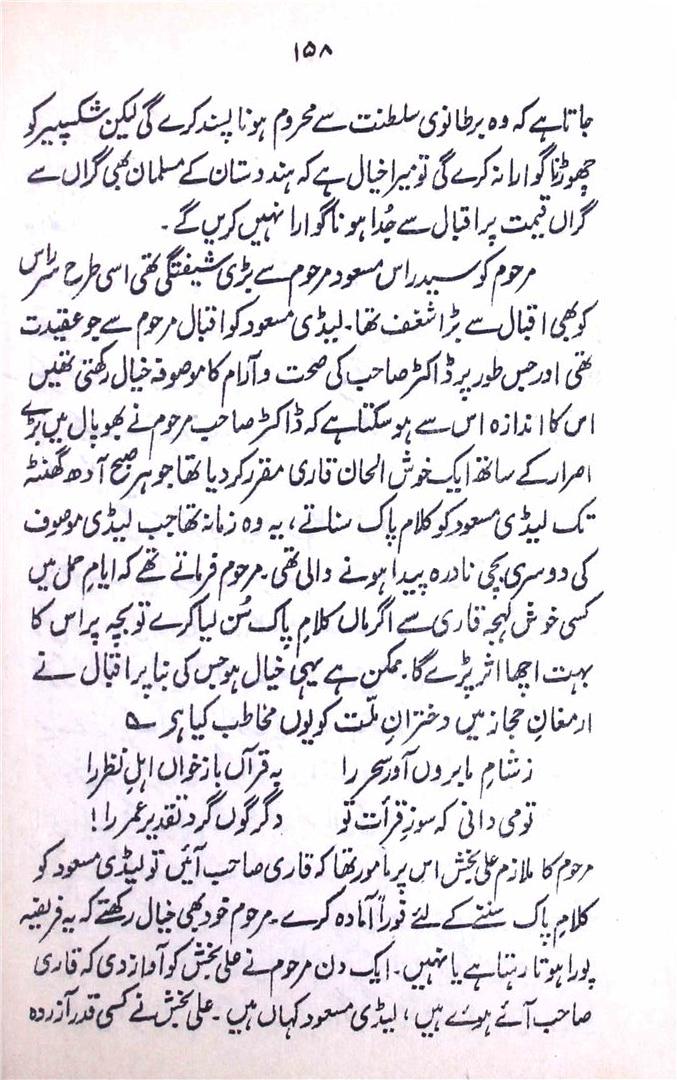 ۱۵۸
جاتا ہے کہ وہ برطانوی سلطنت سے محروم ہونا پسند کرے گی لیکن شکسپیر کو
چھوڑنا گوارا نہ کرے گی تو میرا خیال ہے کہ ہندوستان کے مسلمان بھی گراں سے
گراں قیمت پر اقبال سے جُدا ہونا گوارا نہیں کریں گے۔
مرحوم کو سید راس مسعود مرحوم سے بڑی شیفتگی تھی اسی طرح سر راس
کو بھی اقبال سے بڑا شغف تھا۔ لیڈی مسعود کو اقبال مرحوم سے جو عقیدت
تھی اور جس طور پر ڈاکٹر صاحب کی صحت و آرام کا موصوفہ خیال رکھتی تھیں
اس کا اندازہ اس سے ہو سکتا ہے کہ ڈاکٹر صاحب مرحوم نے بھوپال میں بڑے
اصرار کے ساتھ ایک خوش الحان قاری مقرر کر دیا تھا جو ہر صبح آدھ گھنٹہ
تک لیڈی مسعود کو کلام پاک سناتے، یہ وہ زمانہ تھا جب لیڈی موصوف
کی دوسری بچی نادرہ پیدا ہونے والی تھی۔ مرحوم فرماتے تھے کہ ایام حمل میں
کسی خوش لہجہ قاری سے اگر ماں کلام پاک سُن لیا کرے تو بچہ پر اس کا
بہت اچھا اثر پڑے گا۔ ممکن ہے یہی خیال ہو جس کی بنا پر اقبال نے
ارمغانِ حجاز میں دخترانِ ملّت کو یوں مخاطب کیا ہے ؎
زشامِ ما بروں آور سحر را بہ قرآں باز خواں اہلِ نظر را
تو می دانی کہ سوزِ قرأت تو دگرگوں کرد تقدیرِ عمر را!
مرحوم کا ملازم علی بخش اس پر مامور تھا کہ قاری صاحب آئیں تو لیڈی مسعود کو
کلام پاک سننے کے لئے فوراً آمادہ کرے۔ مرحوم خود بھی خیال رکھتے کہ یہ فریضہ
پورا ہوتا رہتا ہے یا نہیں۔ ایک دن مرحوم نے علی بخش کو آواز دی کہ قاری
صاحب آئے ہوئے ہیں، لیڈی مسعود کہاں ہیں۔ علی بخش نے کسی قدر آزردہ